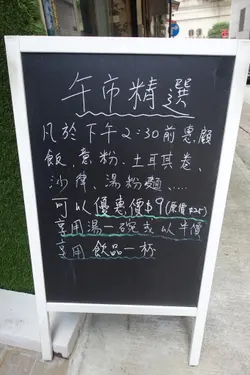 午市精選
凡於下午2:30前惠顧
飯、意粉、土耳其卷、
沙律、湯粉麵、...
可以優惠價$9(原價$25)
享用湯一碗或以半價
享用飲品一杯